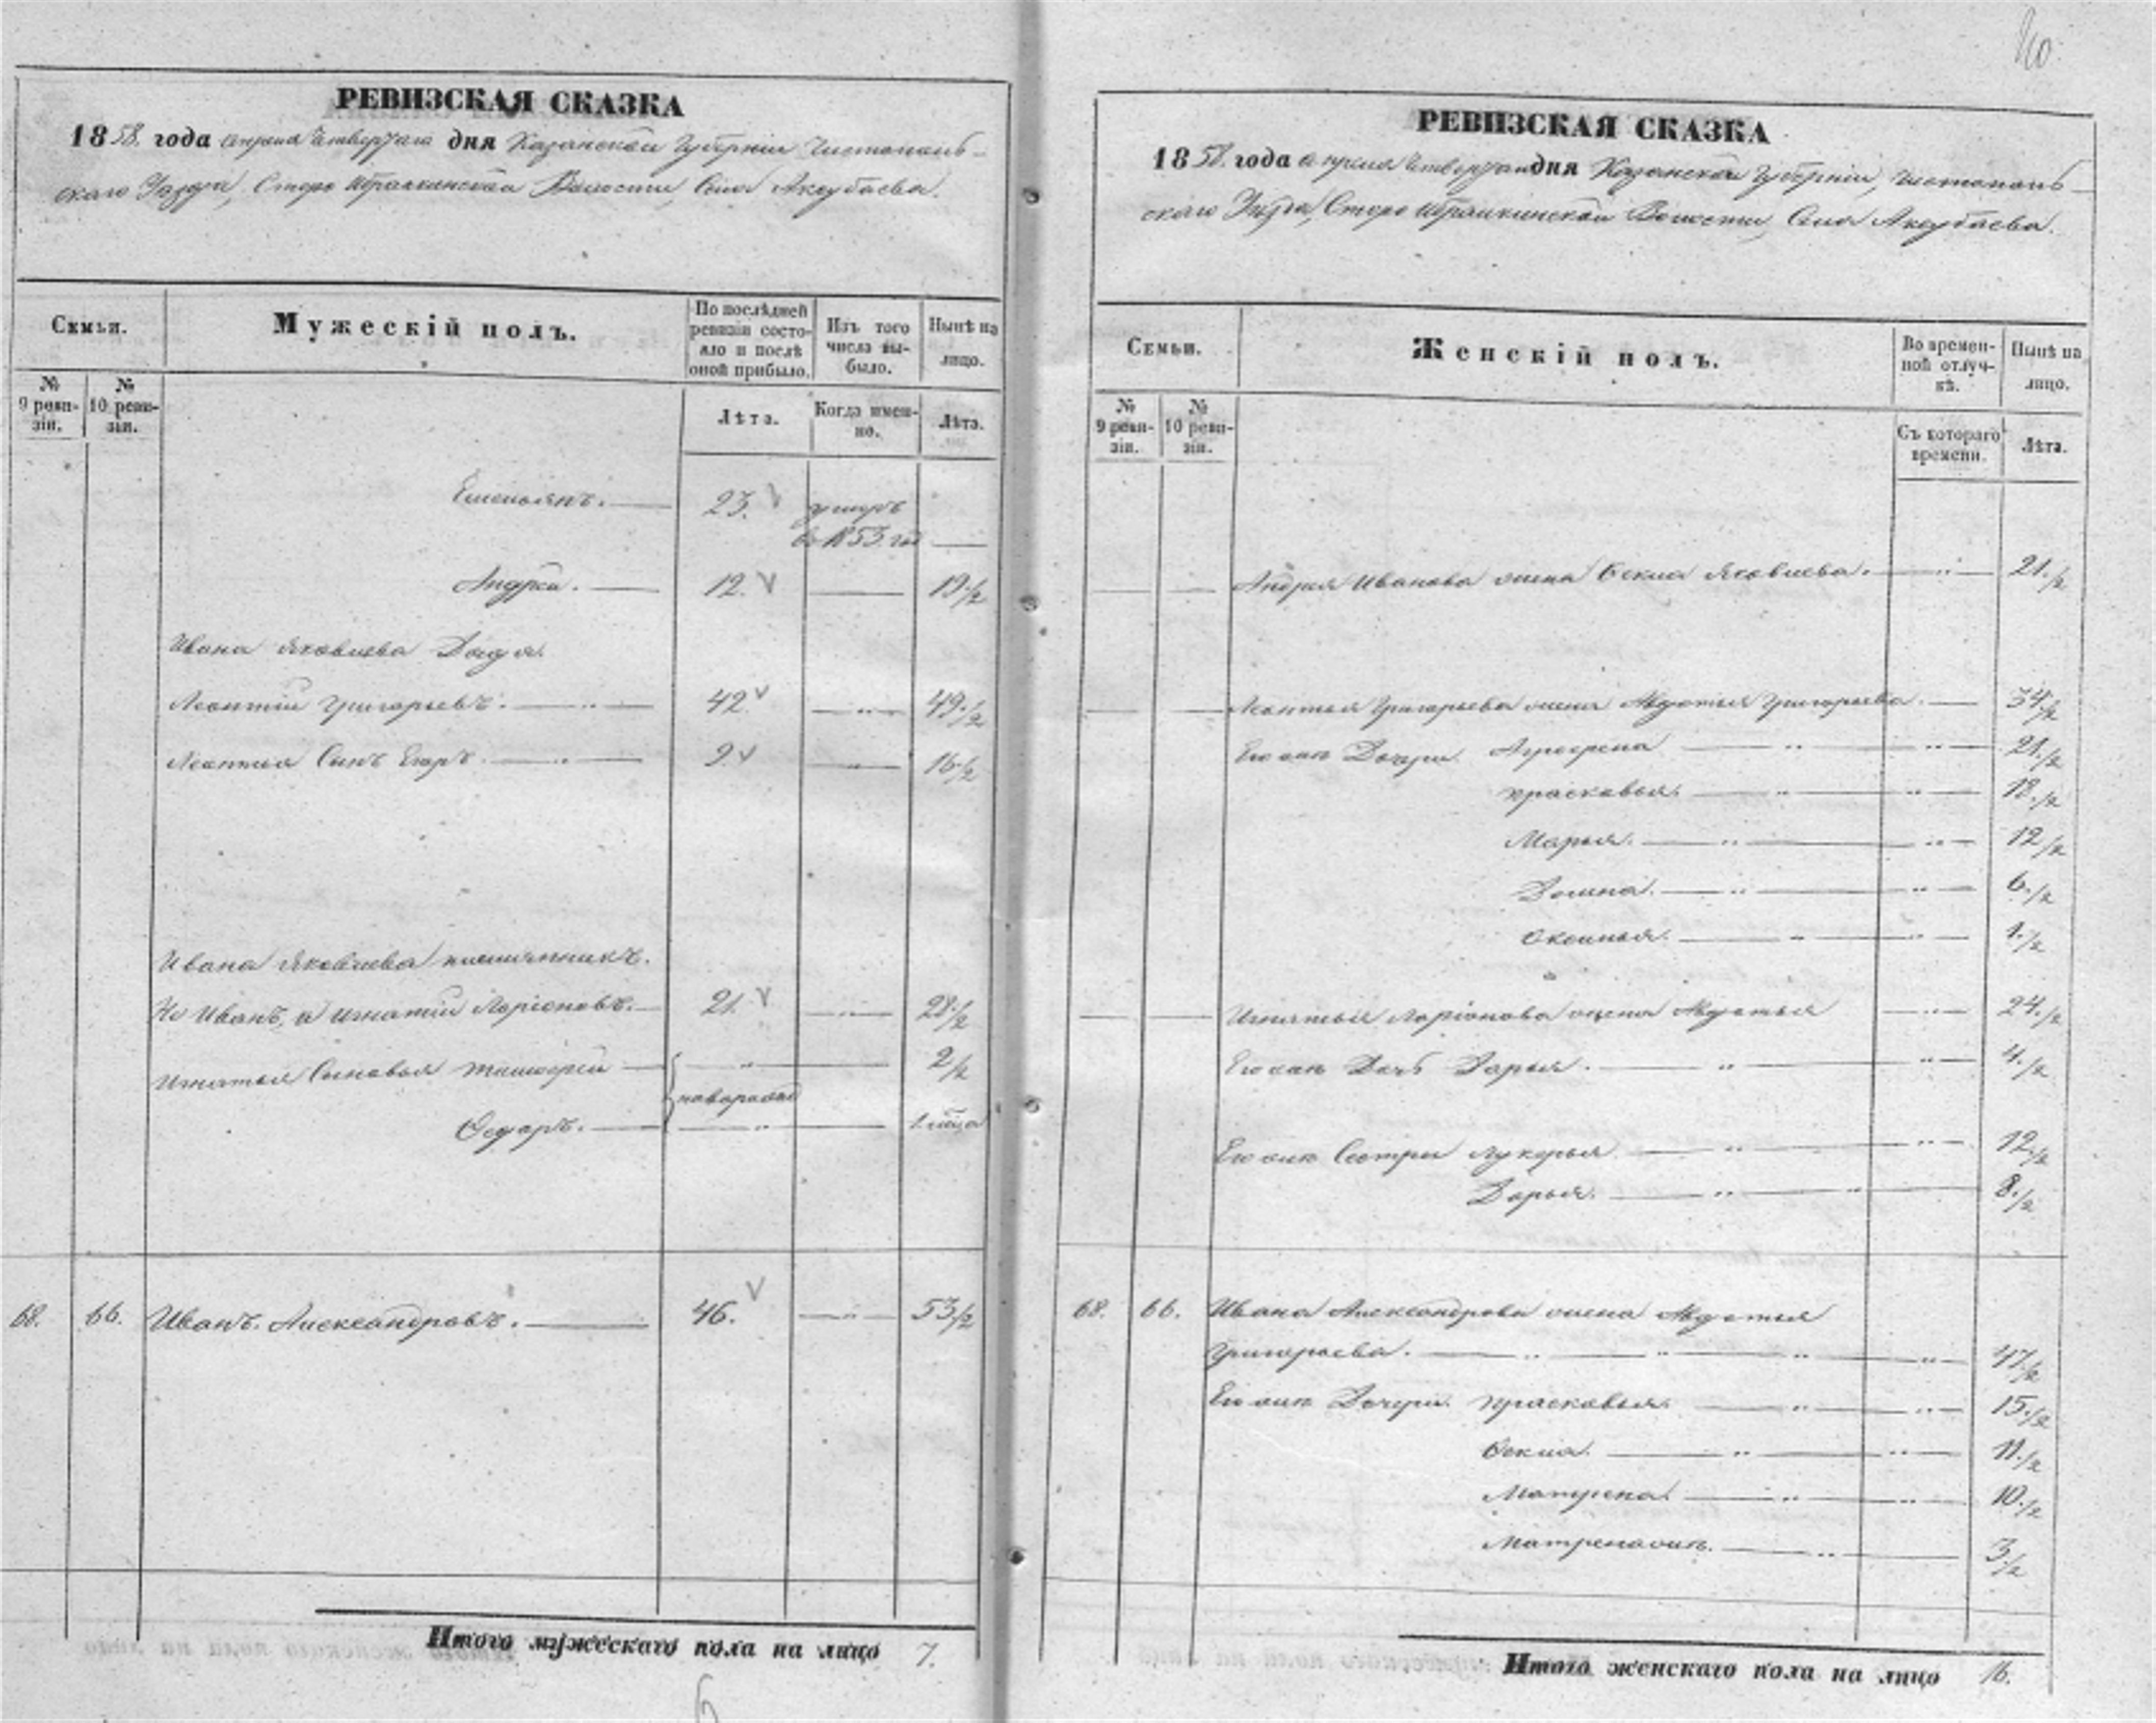 РЕВИЗСКАЯ СКАЗКА
1858. года апреля четвертаго дня Казанской Губернiи Чистополь-
скаго Уезда, Старо Ибрайкинской Волости, Села Аксубаева.
Семьи.
Мужескій полъ.
По послѣдней ревизіи состояло и послѣ оной прибыло.
Изъ того числа выбыло.
Нынѣ на лицо.
№ 9 ревизіи.
№ 10 ревизіи.
Лѣта.
Когда именно.
Лѣта.
Емельянъ. 23. умеръ
во 1853 год
Андрей. 12. 19 1/2
Ивана Яковлева Дядя
Леонтiй Григорьевъ. 42. 49 1/2
Леонтья Сынъ Егоръ. 9. 16 1/2
Ивана Яковлева племянникъ.
Не Иванъ, а Игнатiй Ларiоновъ. 21. 28 1/2
Игнатья Сыновья Тимофей 2 1/2
новорожд
Федоръ. 1 мца
68. 66. Иванъ Александровъ. 46. 53 1/2
Итого мужескаго пола на лицо 7.
РЕВИЗСКАЯ СКАЗКА
1858. года апреля четвертаго дня Казанской Губернiи, Чистополь-
скаго Уезда, Старо Ибрайкинской Волости, Села Аксубаева.
Семьи.
Женскій полъ.
Во временной отлучкѣ.
Нынѣ на лицо.
№ 9 ревизіи.
№ 10 ревизіи.
Съ котораго времени.
Лѣта.
Андрея Иванова жена Фекла Яковлева. 21 1/2
Леонтья Григорьева жена Авдотья Григорьева. 34 1/2
Его жъ Дочери Агрофена 21 1/2
Прасковья. 18 1/2
Марья. 12 1/2
Домна. 6 1/2
Оксинья. 1 1/2
Игнатья Ларiонова жена Авдотья 24 1/2
Его жъ Дочь Дарья. 4 1/2
Его жъ Сестры Лукерья 12 1/2
Дарья. 8 1/2
68. 66. Ивана Александрова жена Авдотья
Григорьева. 47 1/2
Его жъ Дочери Прасковья. 15 1/2
Фекла. 11 1/2
Матрена. 10 1/2
Матрена жъ. 3 1/2
Итого женскаго пола на лицо 16.